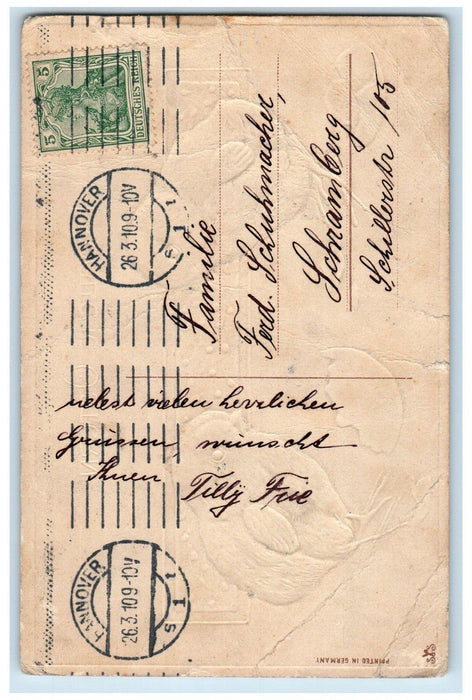 5
5
DEUTSCHES REICH
HANNOVER
26.3.10.9-10V
* 1 s
Familie
Ferd. Schuhmacher,
Schramberg
Schillerstr 105
nebst vielen herzlichen
Grüssen, wünscht
Ihnen Tilly
HANNOVER
26.3.10.9-10V
* 1 s
PRINTED IN GERMANY